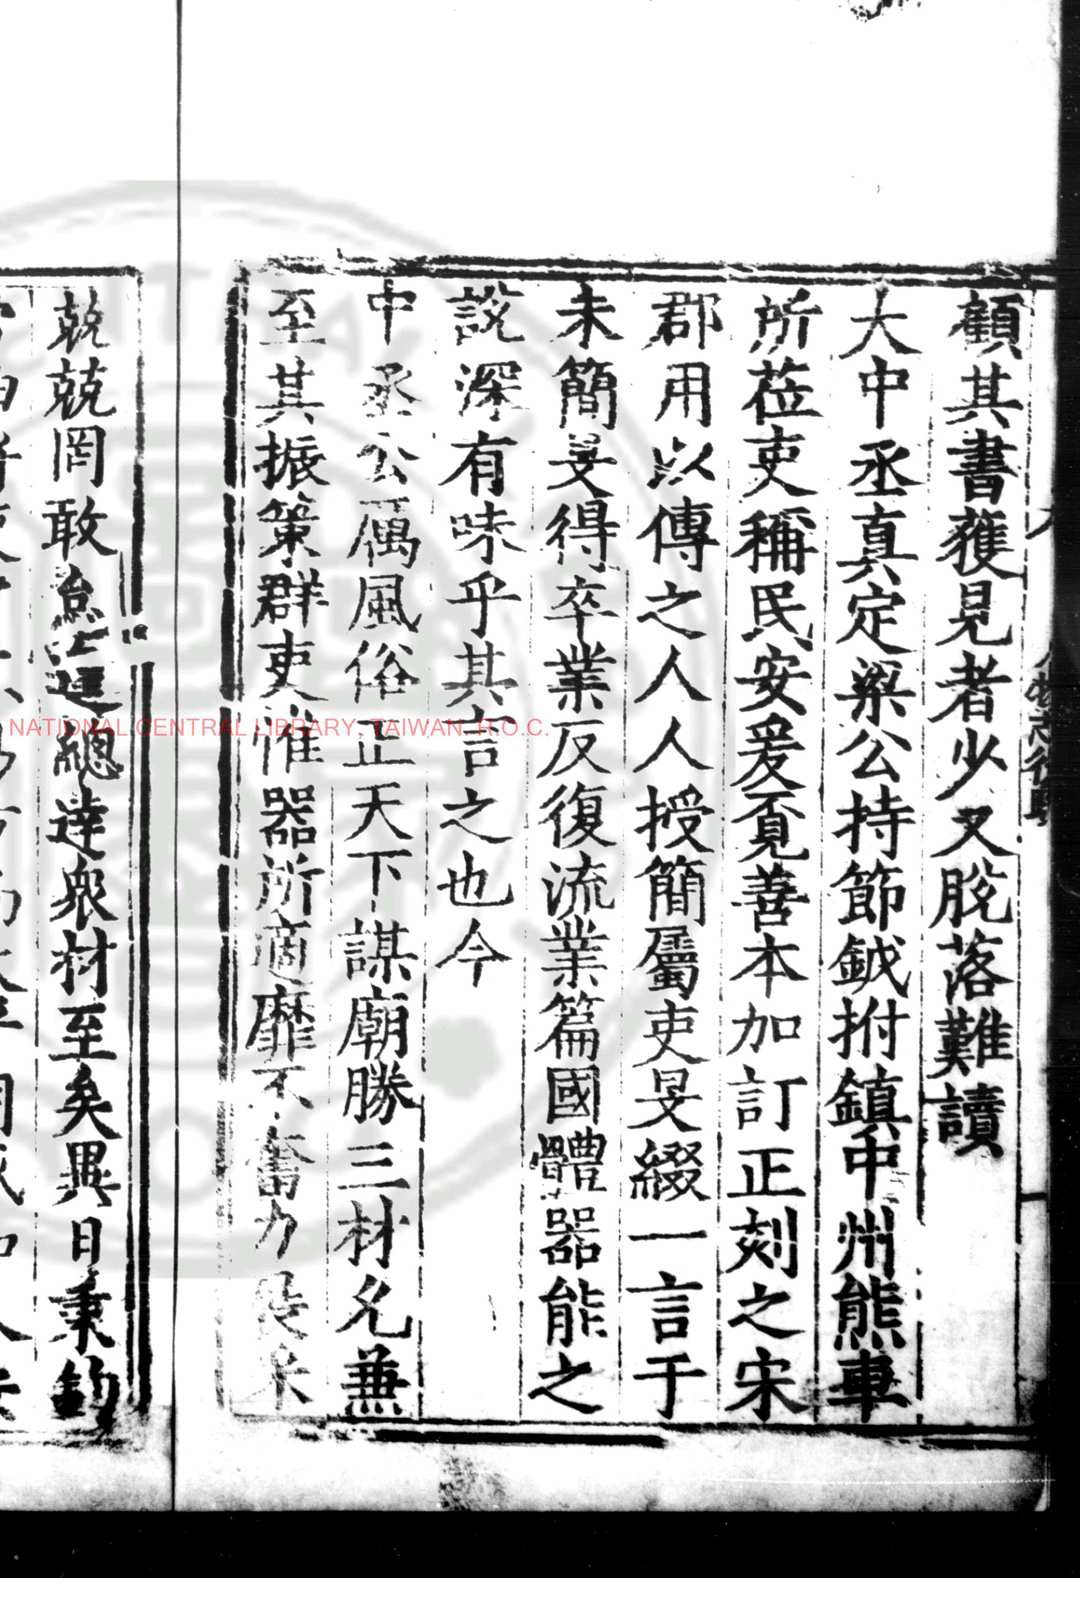 顧其書獲見者少又脫落難讀
大中丞真定梁公持節鉞拊鎮中州熊車
所莅吏稱民安爰覓善本加訂正刻之宋
郡用以傳之人人授簡屬吏旻綴一言于
末簡旻得卒業反復流業篇國體器能之
說深有味乎其言之也今
中丞公厲風俗正天下謀廟勝三材允兼
至其振策群吏惟器所適靡不奮力
兢兢罔敢怠
總達眾材至矣異日秉鈞
NATIONAL CENTRAL LIBRARY, TAIWAN, R.O.C.